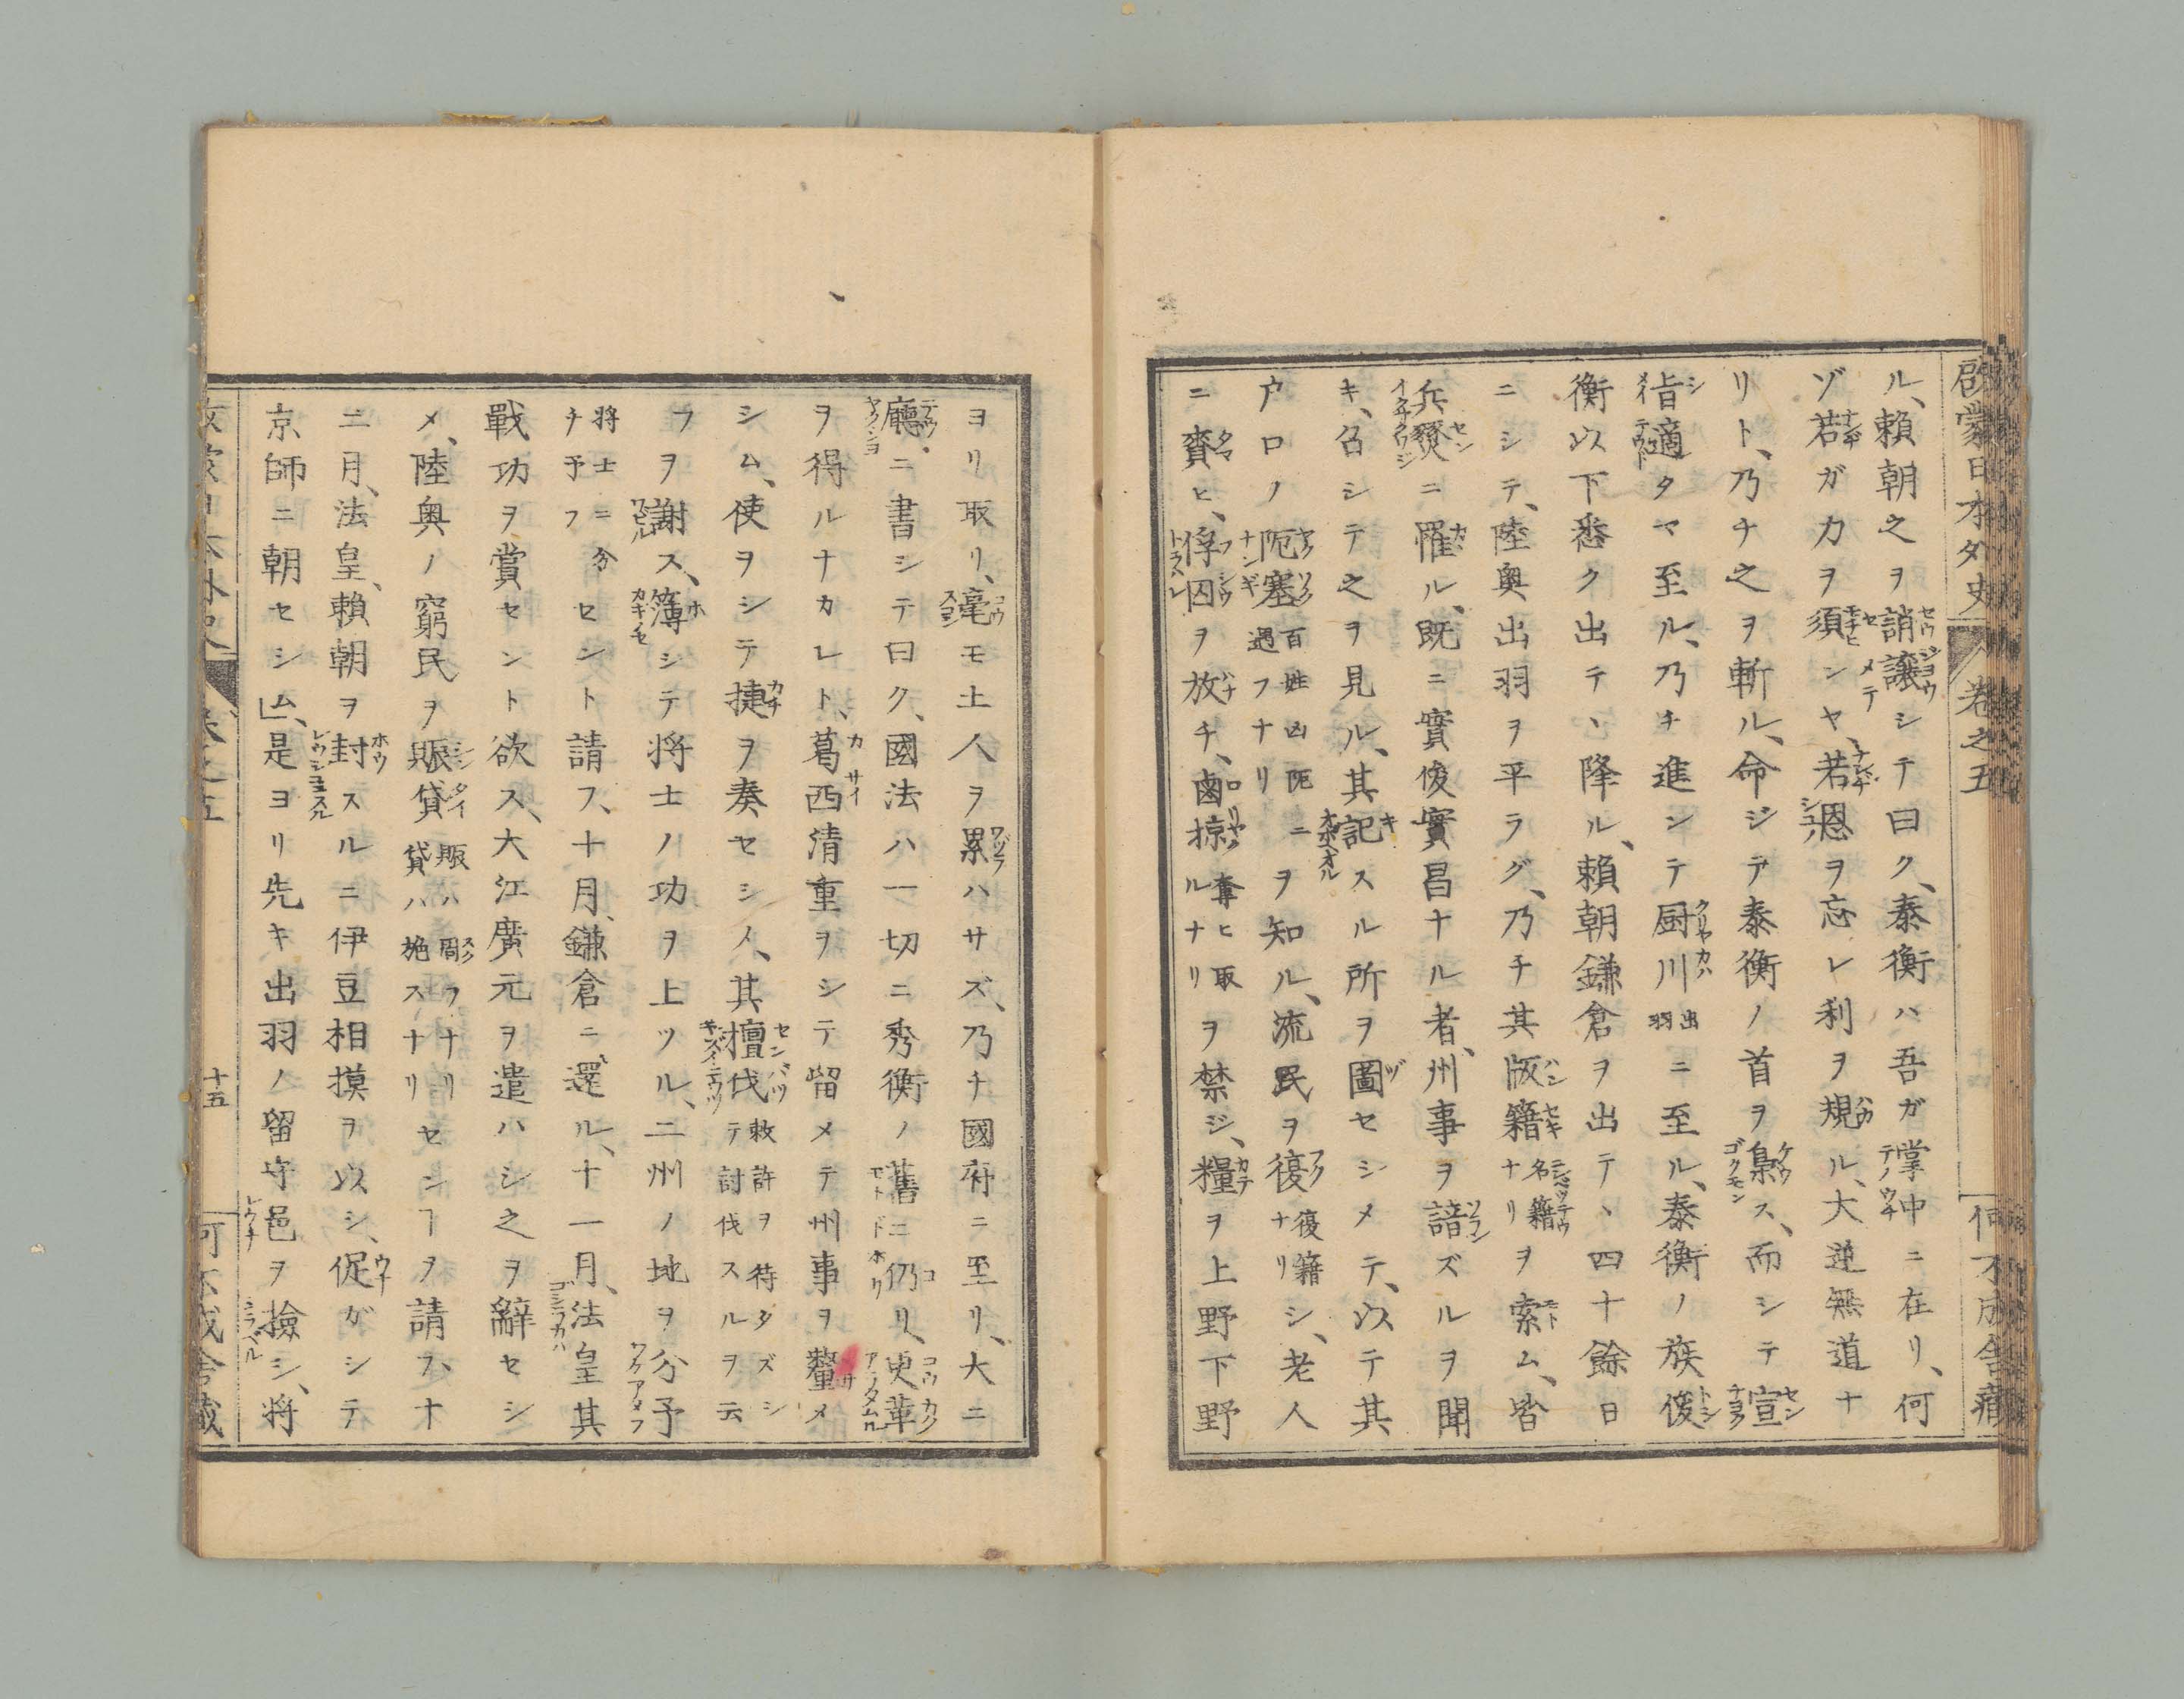 啓蒙日本外史 卷之五 何不成舍藏
ル、賴朝之ヲ誚讓シテ曰ク、泰衡ハ吾ガ掌中ニ在リ、何
ゾ若ガカヲ須ヒンヤ、若恩ヲ忘レ利ヲ規ル、大逆無道ナ
リト、乃チ之ヲ斬ル、命ジテ泰衡ノ首ヲ梟ス、而シテ宣
旨適タマ至ル、乃チ進ンテ厨川出羽ニ至ル、泰衡ノ族俊
衡以下悉ク出テ、降ル、賴朝鎌倉ヲ出テ、四十餘日
ニシテ、陸奥出羽ヲ平ラグ、乃チ其版籍名籍ナリヲ索ム、皆
兵燹ニ罹ル、既ニ實俊實昌ナル者、州事ヲ諳ズルヲ聞
キ、召シテ之ヲ見ル、其記スル所ヲ圖セシメテ、以テ其
户口ノ阨塞百姓凶阨ニ遇フナリヲ知ル、流民ヲ復復籍ナリシ、老人
ニ賚ヒ、俘囚ヲ放チ、鹵掠奪ヒ取ルナリヲ禁ジ、糧ヲ上野下野
ヨリ取リ、毫モ土人ヲ累ハサズ、乃チ國府ニ至リ、大ニ
廳ニ書シテ曰ク、國法ハ一切ニ秀衡ノ舊ニ仍リ、更革
ヲ得ルナカレト、葛西清重ヲシテ留メテ州事ヲ釐メ
シム、使ヲシテ捷ヲ奏セシメ、其擅伐敕許ヲ待タズシテ討伐スルヲ云
フヲ謝ス、簿シテ将士ノ功ヲ上ツル、二州ノ地ヲ分予
将士ニ分チ予フセンヿヲ請フ、十月、鎌倉ニ還ル、十一月、法皇其
戰功ヲ賞セント欲ス、大江廣元ヲ遣ハシ之ヲ辭セシ
メ、陸奥ノ窮民ヲ賑貸賑ハ周フナリ貸ハ施スナリセンヿヲ請フ、十
二月、法皇、賴朝ヲ封スルニ伊豆相摸ヲ以シ、促ガシテ
京師ニ朝セシム、是ヨリ先キ出羽ノ留守邑ヲ撿シ、将
十五